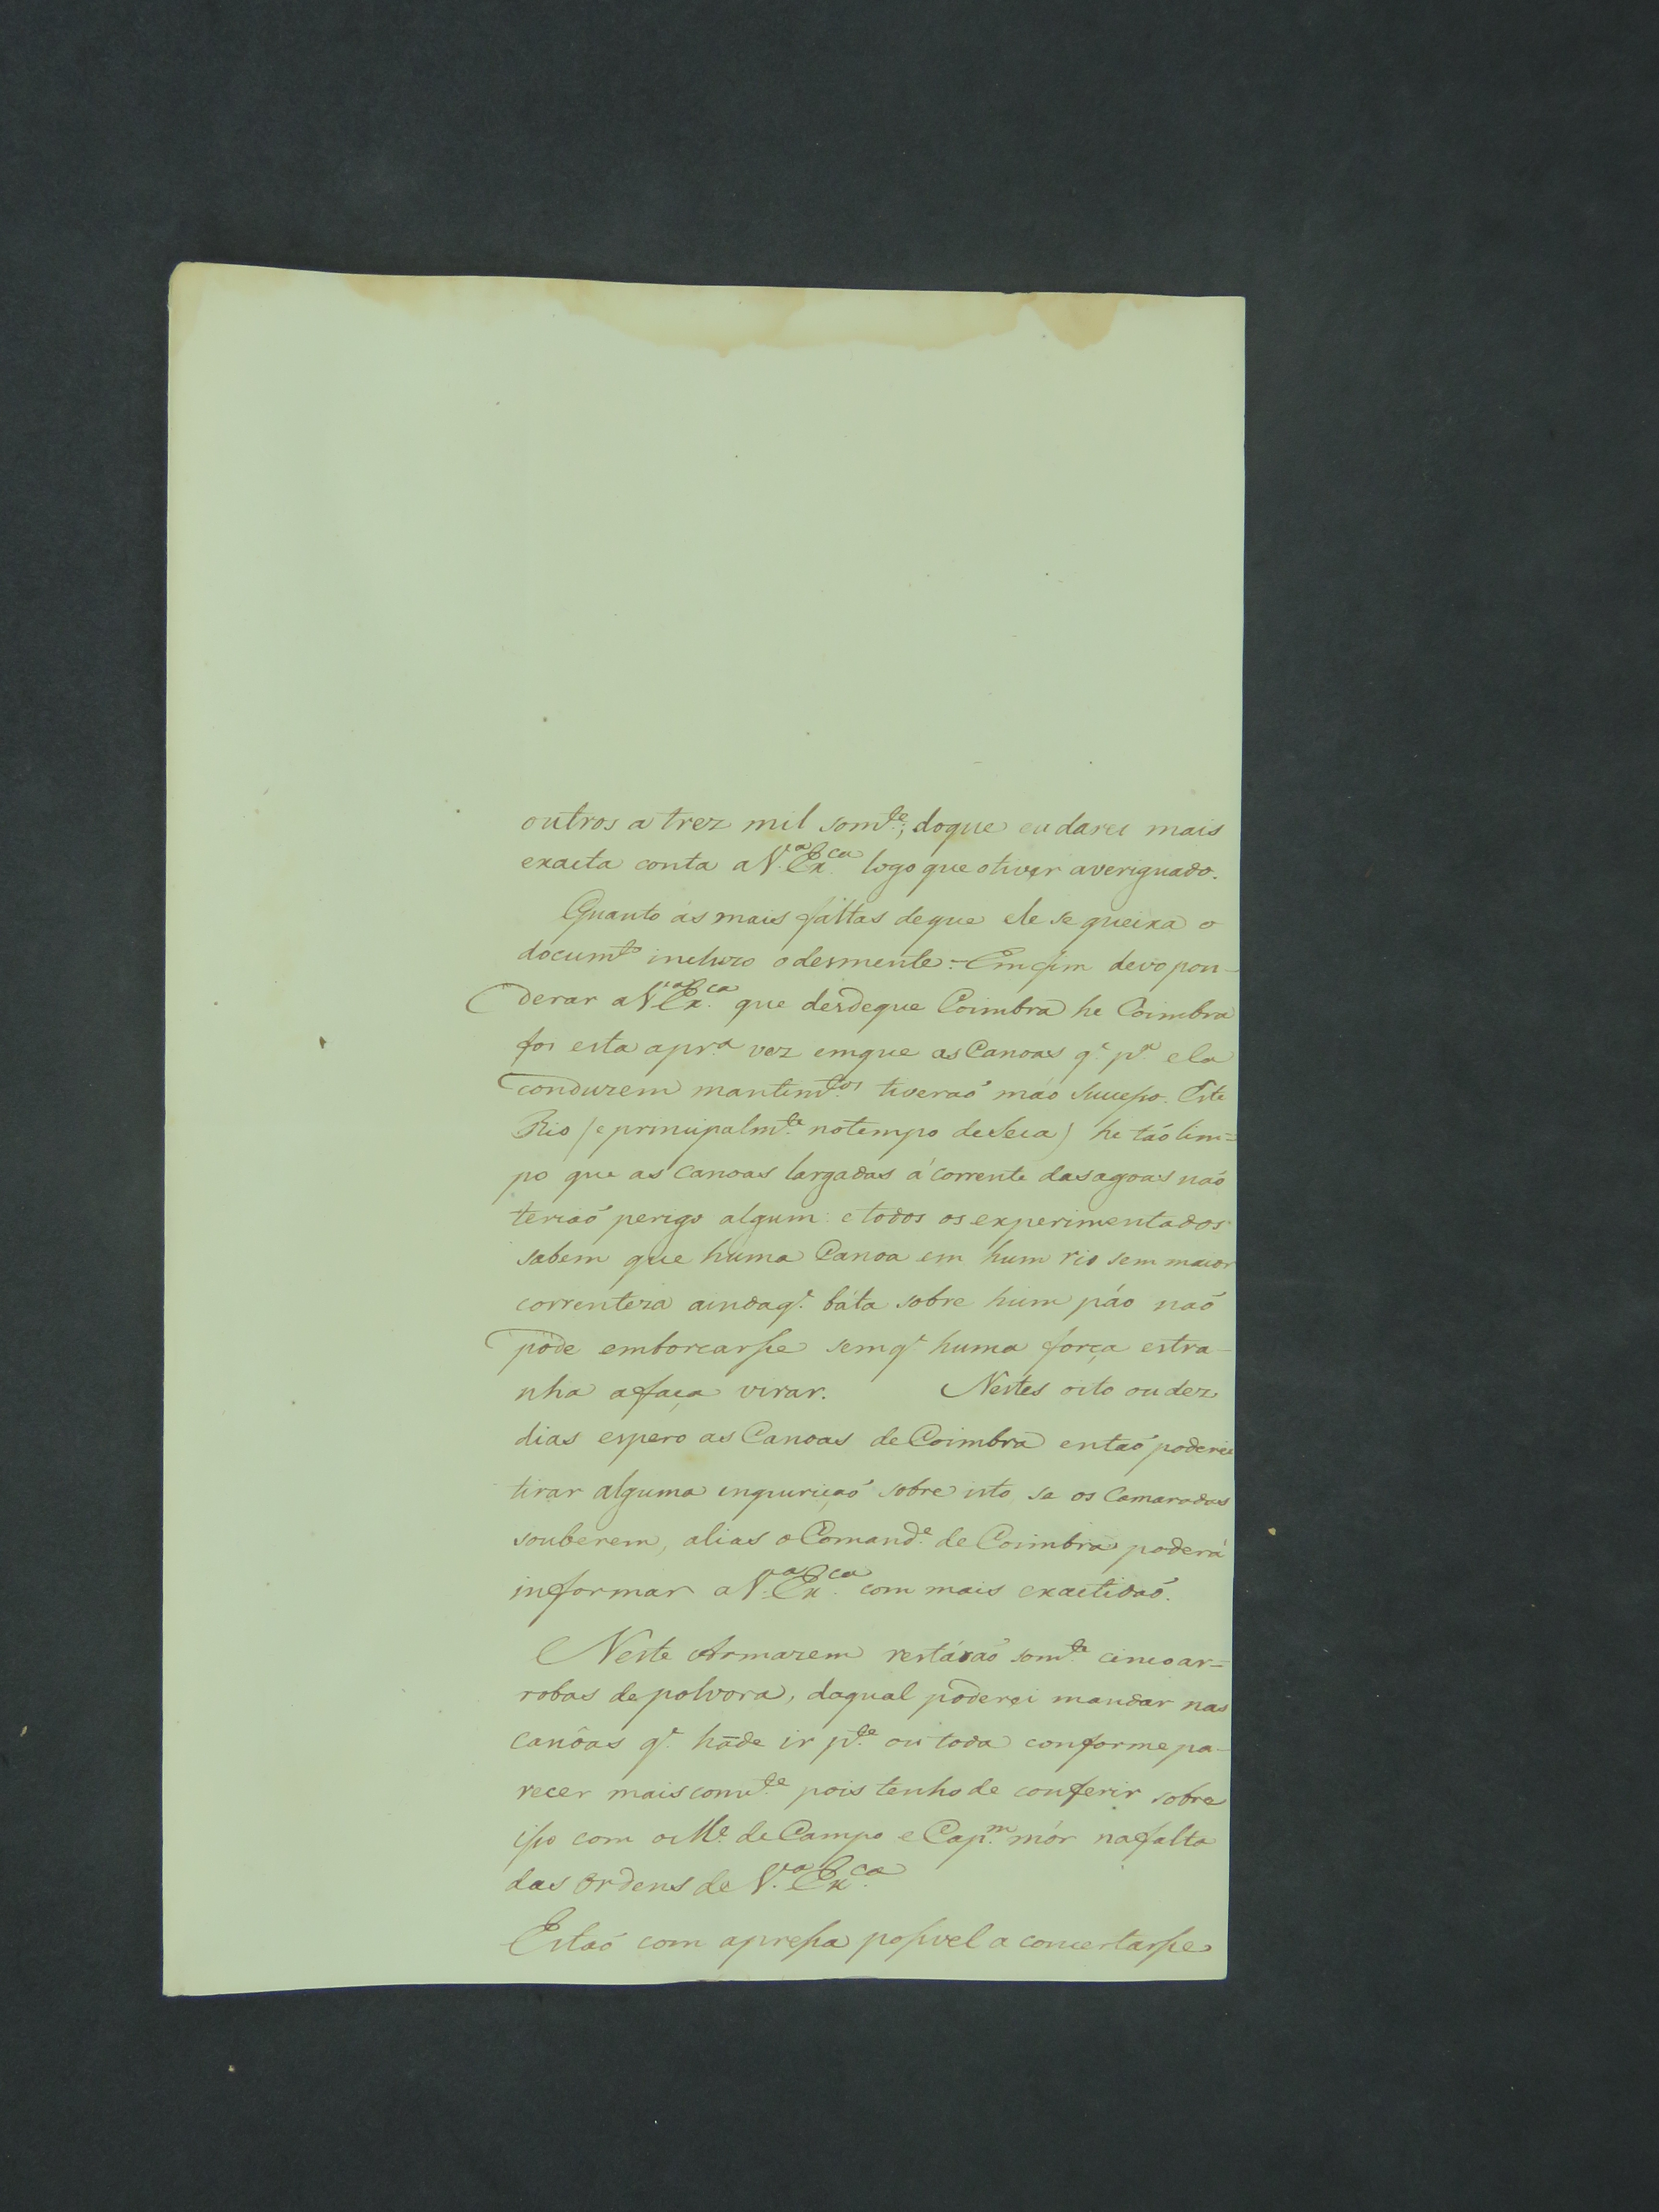 outros a trez mil somte; doque eu darei mais
exacta conta a V.a Ex.ca logo que o tiver averiguado.
Quanto ás mais fáltas deque ele se queixa o
documto incluzo o desmente. = Emfim devo pon-
derar a V.a Ex.ca que desdeque Coimbra he Coimbra
foi esta apr.a vez emque as Canoas q.e p.a ela
conduzem mantim.tos tiveraó máo Sucesso. Este
Rio (e principalm.te notempo de Seca) he táo lim=
po que as Canoas largadas á corrente dasagoas naó
teriaó perigo algum: e todos os experimentados
sabem que huma Canoa em hum rio sem maior
correnteza aindaq.e báta sobre hum páo naó
póde emborcarsse semq.e huma força estra-
nha afaça virar. Nestes oito ou dez
dias espero as Canoas de Coimbra entaó poderei
tirar alguma inquiriçaó sobre isto se os Camaradas
souberem, alias o Comand.e de Coimbra poderá
informar a V.a Ex.ca com mais exactidaó.
Neste Armazem restáraó som.te cinco ar=
robas de polvora, daqual poderei mandar nas
canôas q.e hãde ir p.te ou toda conforme pa-
recer mais conv.te pois tenho de conferir sobre
isso com o M.e de Campo e Cap.m mór nafalta
das ordens de V.a Ex.ca
Estaó com apressa possivel a concertarsse